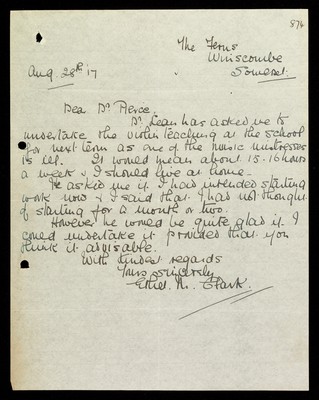 874
The Ferns
Winscombe
Somerset.
Aug. 28th 17
Dear Dr Pierce,
Dr Lean has asked me to
undertake the violin teaching at the school
for next term as one of the music mistresses
is ill. It would mean about 15-16 hours
a week & I should live at home.
He asked me if I had intended starting
work now & I said that I had not thought
of starting for a month or two.
However he would be quite glad if I
could undertake it provided that you
think it advisable.
With kindest regards
Yours sincerely
Ethel M. Clark.